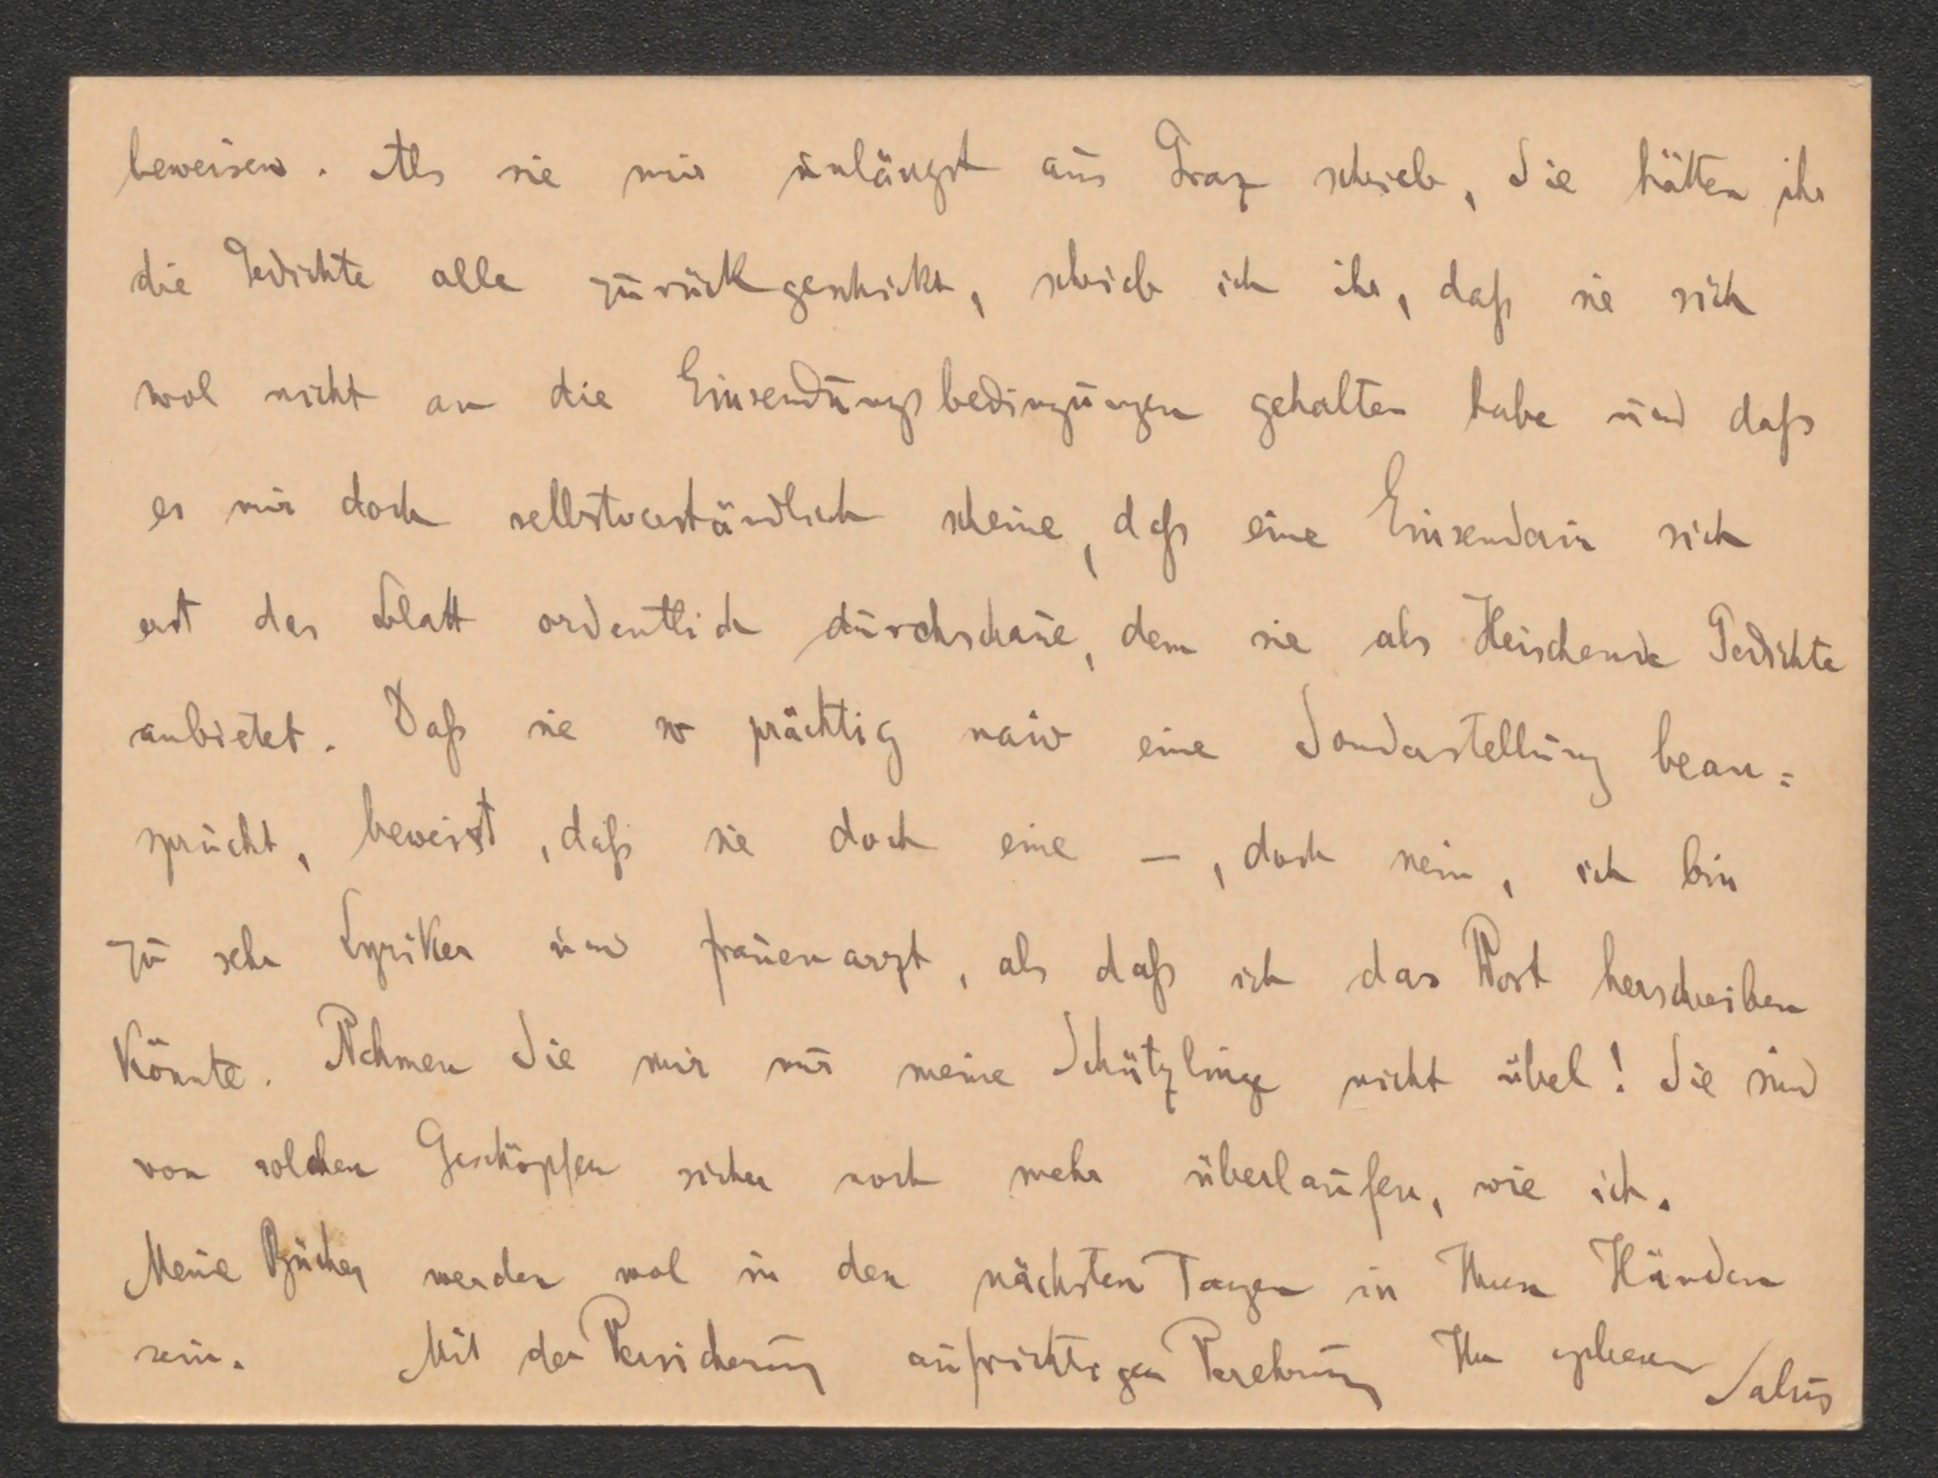 beweisen. Als sie mir unlängst aus Graz schrieb, Sie hätten ihr
die Gedichte alle zurückgeschickt, schrieb ich ihr, daß sie sich
wol nicht an die Einsendungsbedingungen gehalten habe und daß
es mir doch selbstverständlich scheine, daß eine Einsenderin sich
erst das Blatt ordentlich durchschaue, dem sie als Heischende Gedichte
anbietet. Daß sie so prächtig naiv eine Sonderstellung bean=
sprucht, beweist, daß sie doch eine —, doch nein, ich bin
zu sehr Lyriker und Frauenarzt, als daß ich das Wort herschreiben
könnte. Nehmen Sie mir nur meine Schützlinge nicht übel! Sie sind
von solchen Geschöpfen sicher noch mehr überlaufen, wie ich.
Meine Bücher werden wol in den nächsten Tagen in Ihren Händen
sein. Mit der Versicherung aufrichtiger Verehrung Ihr ergebener Salus